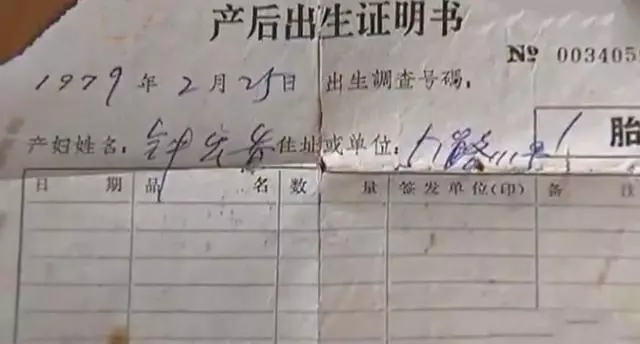 产后出生证明书
№ 003405
1979年2月25日 出生调查号码:
产妇姓名: 钟 住址或单位:
胎
日期 品名 数量 签发单位(印) 备注